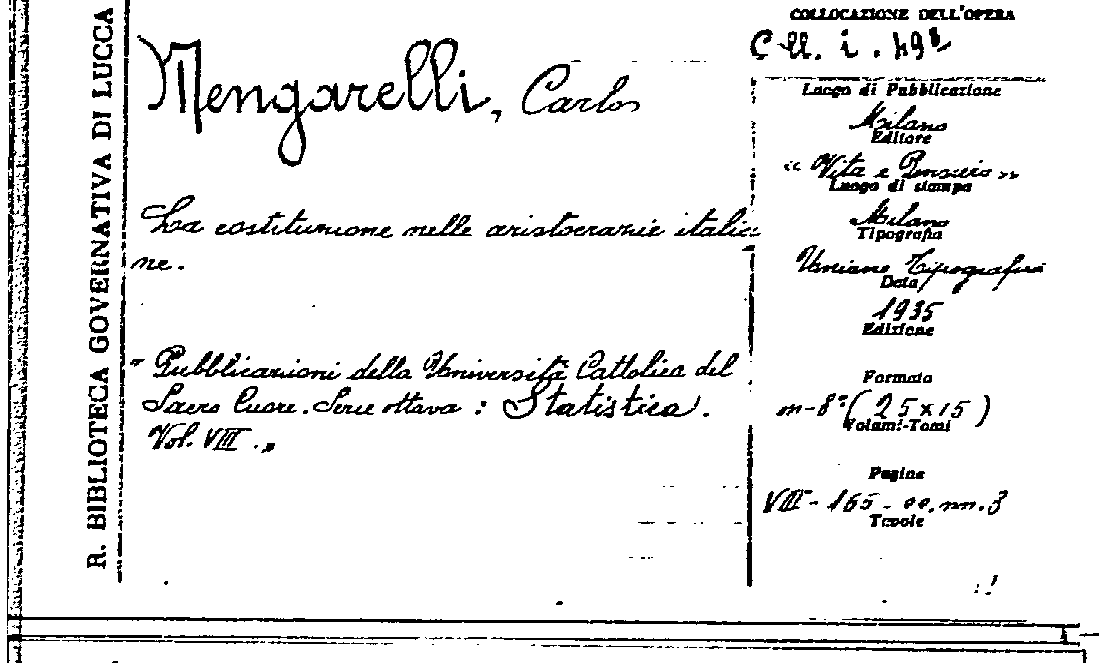 R. BIBLIOTECA GOVERNATIVA DI LUCCA
Mengarelli, Carlo
La costituzione nelle aristocrazie italia
ne.
" Pubblicazioni della Università Cattolica del
Sacro Cuore. Serie ottava : Statistica.
Vol. VIII . "
COLLOCAZIONE DELL'OPERA
Coll. i. 49
Luogo di Pubblicazione
Milano
Editore
« Vita e Pensiero »
Luogo di stampa
Milano
Tipografia
Unione Tipografica
Data
1935
Edizione
Formato
m-8° ( 25x15 )
Volumi-Tomi
Pagine
VIII - 165 - cc. nn. 3
Tavole